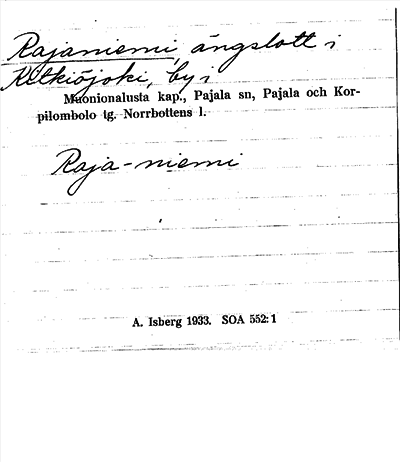 Rajaniemi, ängslott i
Kitkiöjoki, by i
Muonionalusta kap., Pajala sn, Pajala och Kor-
pilombolo tg. Norrbottens l.
Raja-niemi
A. Isberg 1933. SOA 552: 1